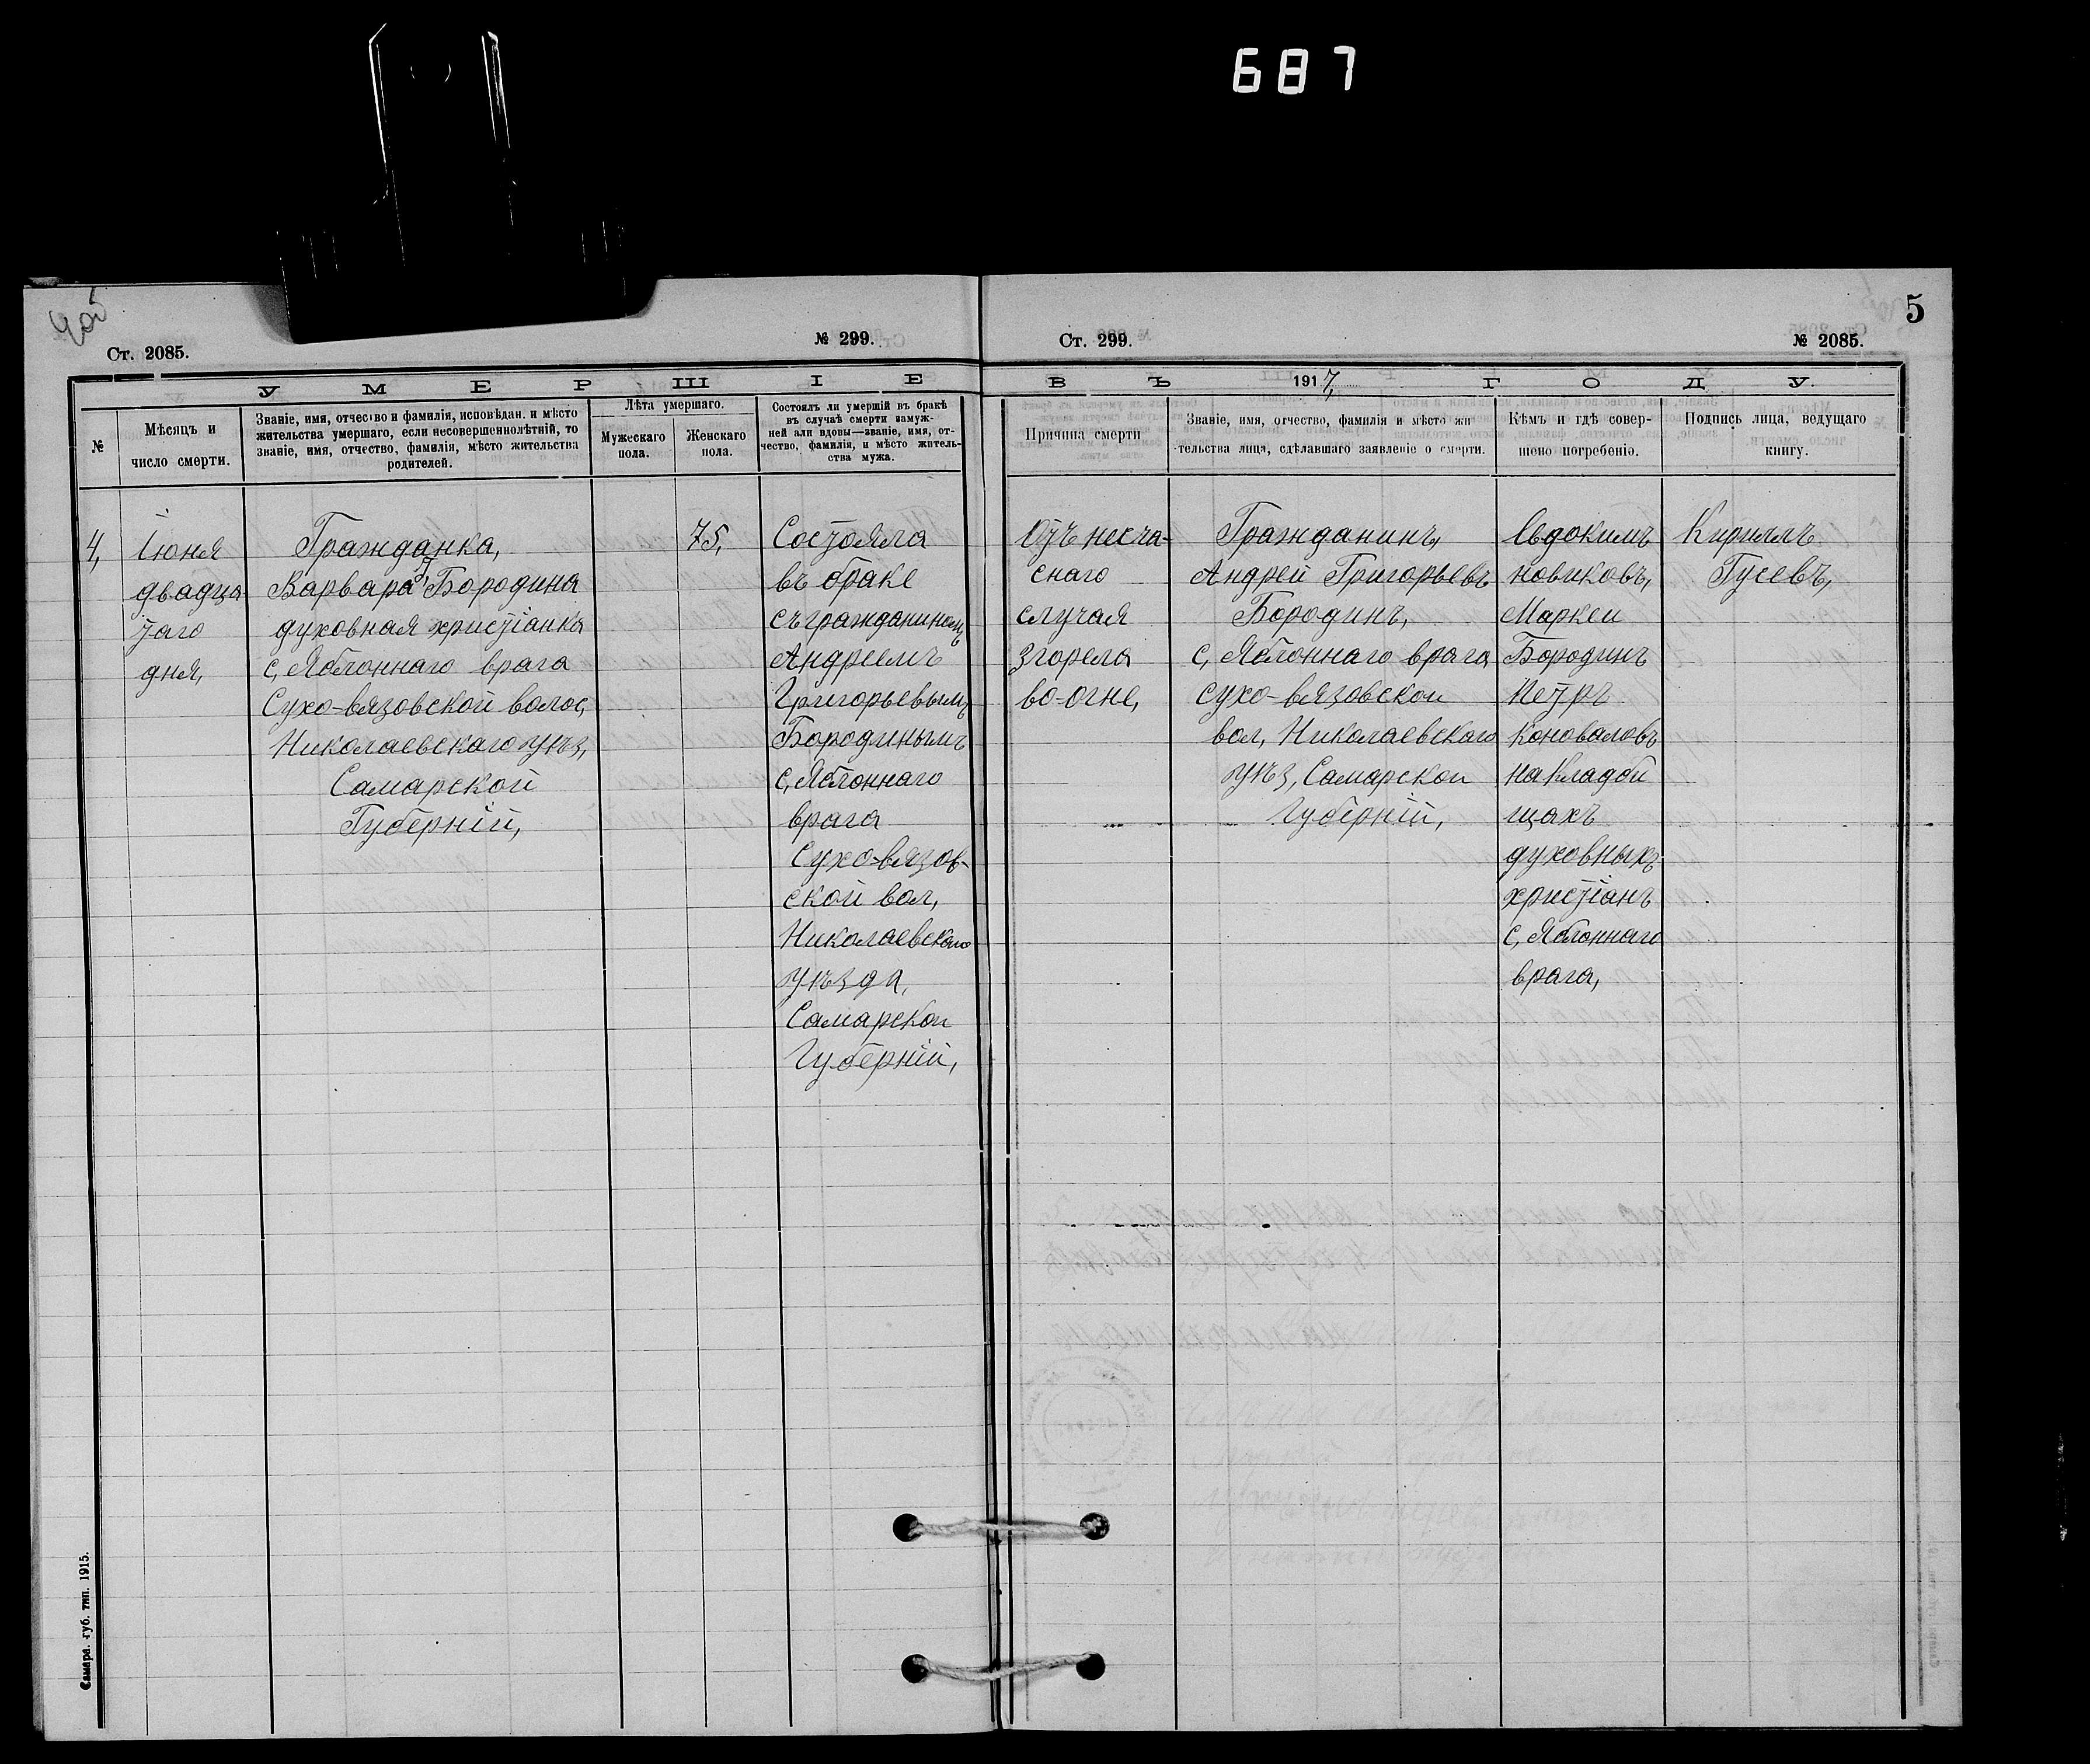 687
5
Ст. 2085.
№ 299.
Ст. 299.
№ 2085.
УМЕРШІЕ
ВЪ 1917, ГОДУ.
№
Мѣсяцъ и
число смерти.
Званіе, имя, отчество и фамилія, исповѣдан. и мѣсто
жительства умершаго, если несовершеннолѣтній, то
званіе, имя, отчество, фамилія, мѣсто жительства
родителей.
Лѣта умершаго.
Мужескаго
пола.
Женскаго
пола.
Состоялъ ли умершій въ бракѣ
въ случаѣ смерти замуж-
ней али вдовы—званіе, имя, от-
чество, фамилія, и мѣсто житель-
ства мужа.
Причина смерти
Званіе, имя, отчество, фамилія и мѣсто жи
тельства лица, сдѣлавшаго заявленіе о смерти.
Кѣмъ и гдѣ совер-
шено погребеніе.
Подпись лица, ведущаго
книгу.
4,
Іюня
двадца
таго
дня,
Гражданка,
Варвара Бородина
духовная христіанка
с, Яблоннаго врага
Сухо-вязовской волос,
Николаевскаго уѣз,
Самарской
Губерній,
75,
Состояла
въ браке
съ гражданиномъ
Андреемъ
Григорьевымъ
Бородинымъ
с, Яблоннаго
врага
Сухо-вязов-
ской вол,
Николаевскаго
уѣзда,
Самарскои
Губерній,
Отъ несча-
снаго
случая
згорела
во-огне,
Гражданинъ,
Андрей Григорьевъ
Бородинъ,
с, Яблоннаго врага
сухо-вязовскои
вол, Николаевскаго
уѣз, Самарскои
Губерній,
Евдокимъ
новиковъ,
Маркеи
Бородинъ
Петръ
Коноваловъ
на кладби
щахъ
духовныхъ
христіанъ
с, Яблоннаго
врага,
Кириллъ
Гусевъ,
Самара. губ. тип. 1915.